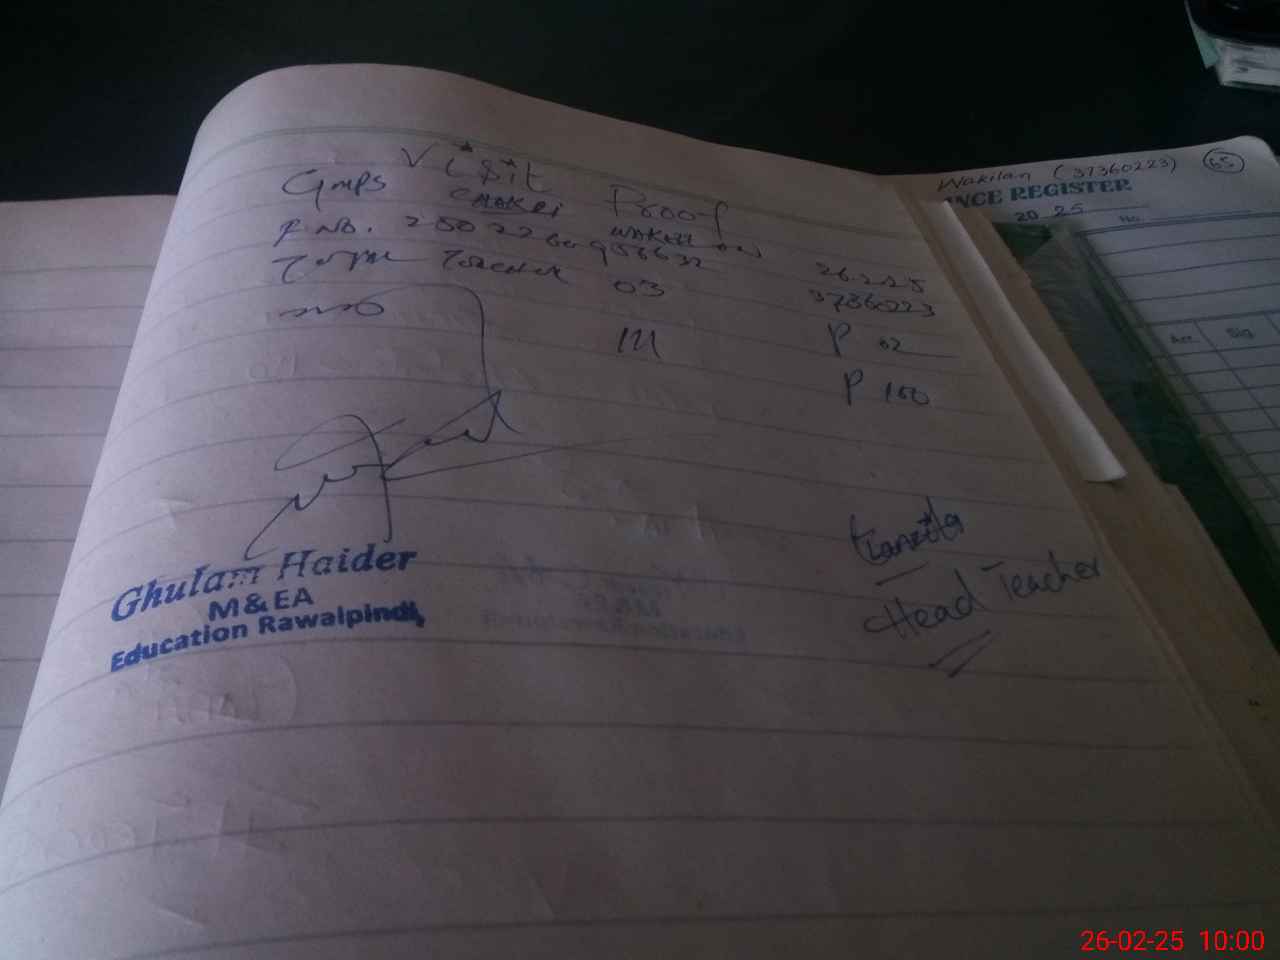 Visit Proof
GMPS CHAKRI WAKILAN 26.2.25
R No. 37360223
Total Teacher 03 P 02
111 P 100
Ghulam Haider
M & EA
Education Rawalpindi,
Tanzila
Head Teacher
Wakilan (37360223) 65
NCE REGISTER
20 25 No.
Arr. Sig
26-02-25 10:00